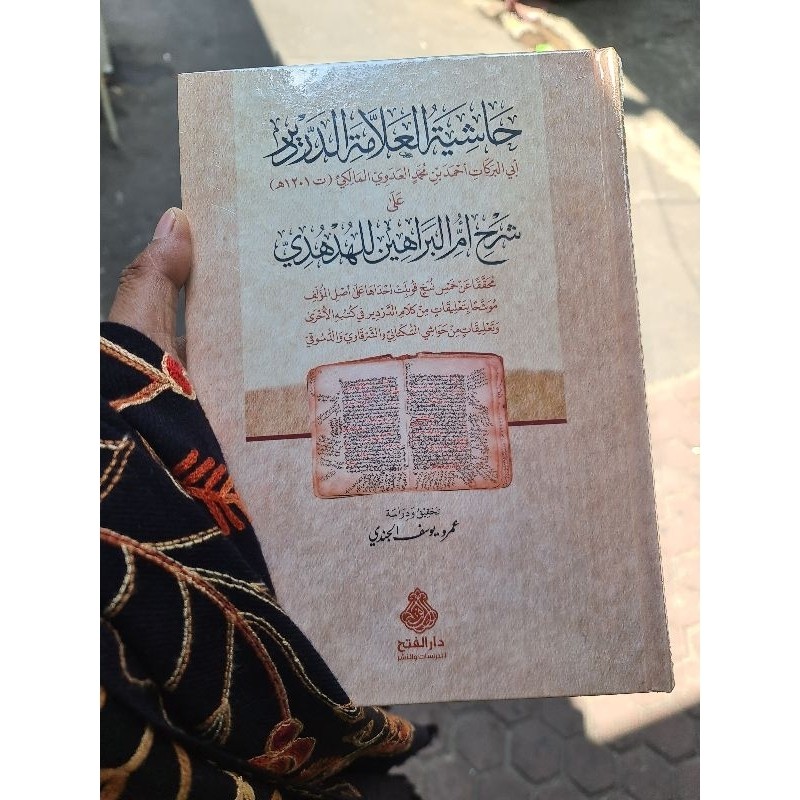 حَاشِيَةُ العَلَّامَةِ الدَّرْدِيرِ
أَبِي البَرَكَاتِ أَحْمَدَ بْنِ مُحَمَّدٍ العَدَوِيِّ المَالِكِيِّ (ت ١٢٠١هـ)
عَلَى
شَرْحِ أُمِّ البَرَاهِينِ لِلْهُدْهُدِيِّ
مُحَقَّقًا عَنْ خَمْسِ نُسَخٍ قُوبِلَتْ إِحْدَاهَا عَلَى أَصْلِ المُؤَلِّفِ
مُوَشَّحًا بِتَعْلِيقَاتٍ مِنْ كَلَامِ الدَّرْدِيرِ فِي كُتُبِهِ الأُخْرَى
وَتَعْلِيقَاتٍ مِنْ حَوَاشِي السُّكْتَانِيِّ وَالشَّرْقَاوِيِّ وَالدُّسُوقِيِّ
تَحْقِيقُ وَدِرَاسَةُ
عمرو يوسف الجندي
دار الفتح
للدراسات والنشر